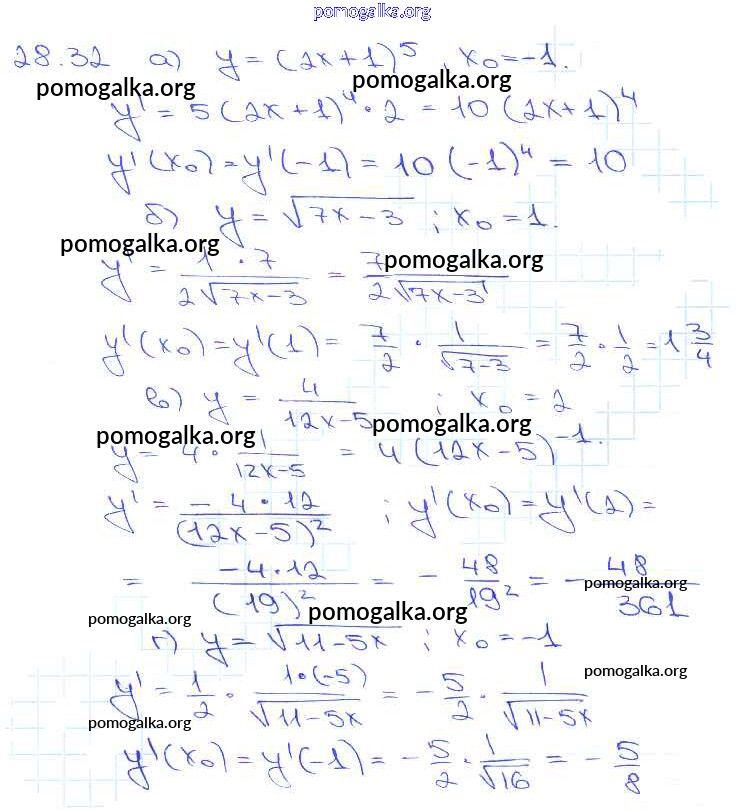 pomogalka.org
28.32 а) y = (2x+1)^5, x₀ = -1.
pomogalka.org pomogalka.org
y' = 5(2x+1)^4 · 2 = 10(2x+1)^4
y'(x₀) = y'(-1) = 10(-1)^4 = 10
б) y = √(7x-3) ; x₀ = 1.
pomogalka.org pomogalka.org
y' = (1·7)/(2√(7x-3)) = 7/(2√(7x-3))
y'(x₀) = y'(1) = 7/2 · 1/√(7-3) = 7/2 · 1/2 = 1 3/4
в) y = 4/(12x-5) ; x₀ = 2
pomogalka.org pomogalka.org
y = 4 · 1/(12x-5) = 4(12x-5)^-1.
y' = (-4·12)/(12x-5)² ; y'(x₀) = y'(2) =
= (-4·12)/(19)² = - 48/19² = - 48/361
pomogalka.org
pomogalka.org pomogalka.org
г) y = √(11-5x) ; x₀ = -1
pomogalka.org
y' = 1/2 · (1·(-5))/√(11-5x) = - 5/2 · 1/√(11-5x)
pomogalka.org pomogalka.org
y'(x₀) = y'(-1) = - 5/2 · 1/√16 = - 5/8